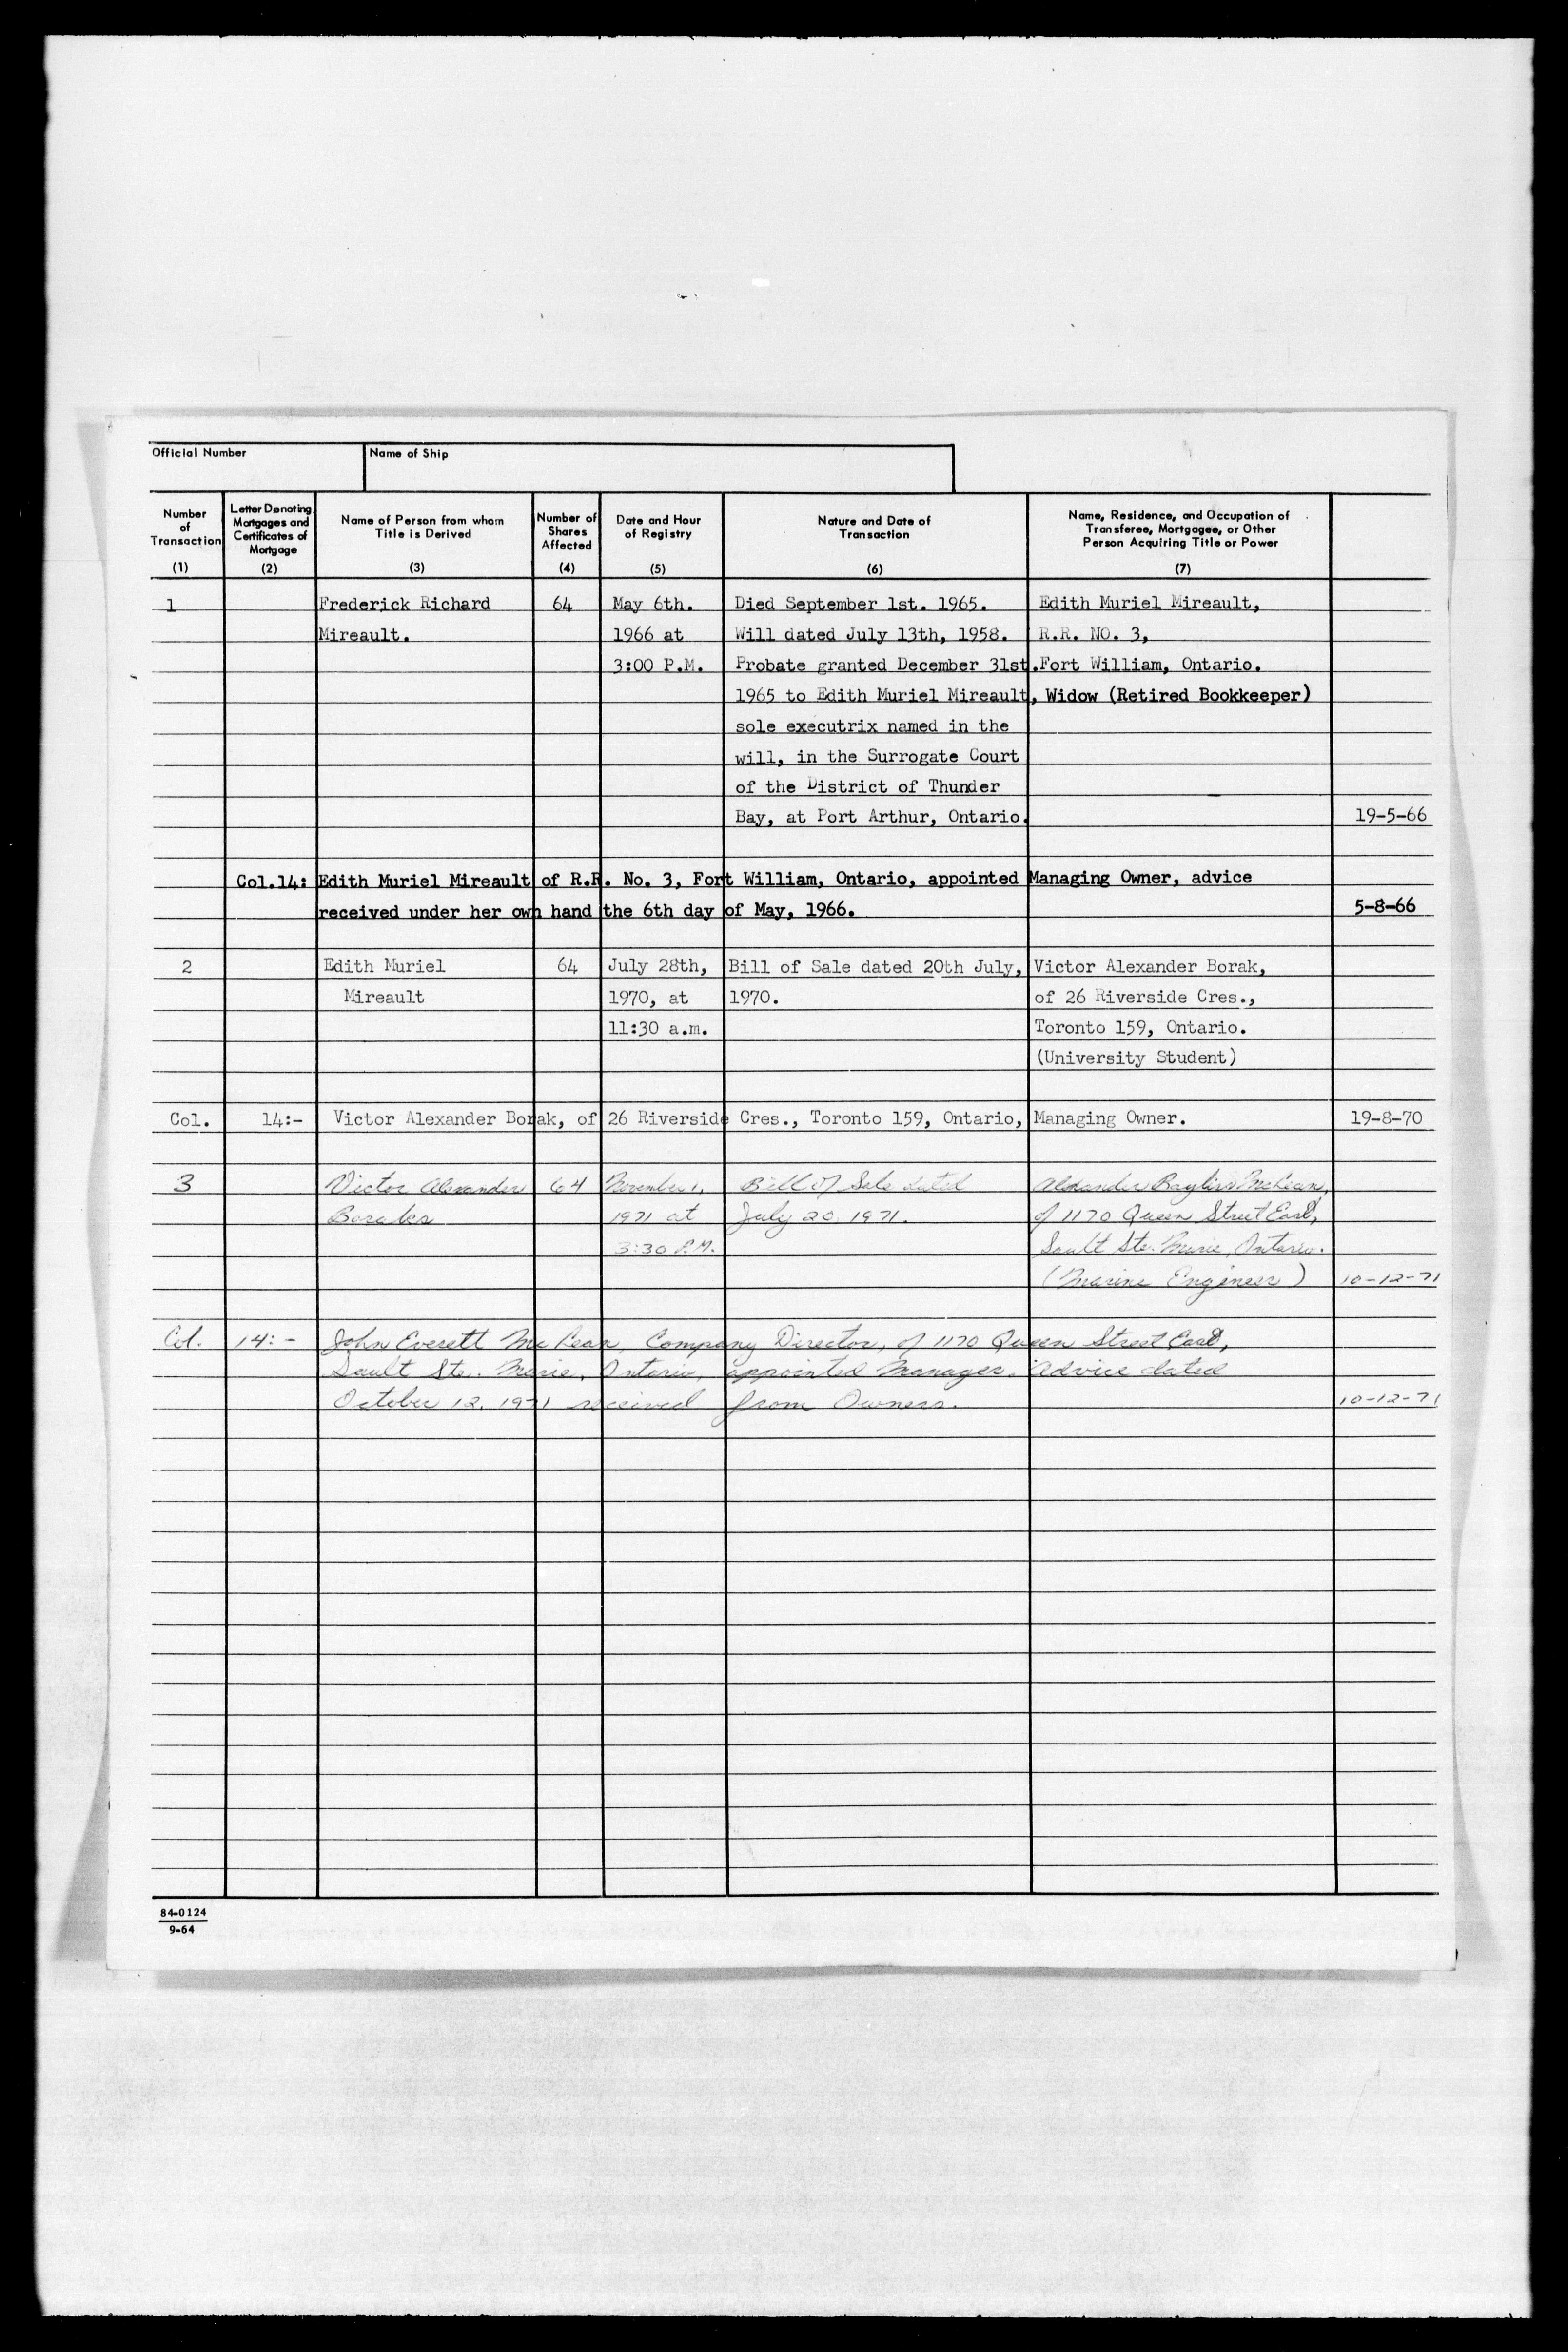 Official Number Name of Ship
Number of Transaction (1) Letter Denoting Mortgages and Certificates of Mortgage (2) Name of Person from whom Title is Derived (3) Number of Shares Affected (4) Date and Hour of Registry (5) Nature and Date of Transaction (6) Name, Residence, and Occupation of Transferee, Mortgagee, or Other Person Acquiring Title or Power (7)
1 Frederick Richard 64 May 6th. Died September 1st. 1965. Edith Muriel Mireault,
Mireault. 1966 at Will dated July 13th, 1958. R.R. NO. 3,
3:00 P.M. Probate granted December 31st. Fort William, Ontario.
1965 to Edith Muriel Mireault, Widow (Retired Bookkeeper)
sole executrix named in the
will, in the Surrogate Court
of the District of Thunder
Bay, at Port Arthur, Ontario. 19-5-66
Col.14: Edith Muriel Mireault of R.R. No. 3, Fort William, Ontario, appointed Managing Owner, advice
received under her own hand the 6th day of May, 1966. 5-8-66
2 Edith Muriel 64 July 28th, Bill of Sale dated 20th July, Victor Alexander Borak,
Mireault 1970, at 1970. of 26 Riverside Cres.,
11:30 a.m. Toronto 159, Ontario.
(University Student)
Col. 14:- Victor Alexander Borak, of 26 Riverside Cres., Toronto 159, Ontario, Managing Owner. 19-8-70
3 Victor Alexander 64 November 1, Bill of Sale dated Alexander Bayliss McLean,
1971 at July 20, 1971. of 1170 Queen Street East,
3:30 P.M. Sault Ste. Marie, Ontario.
(Marine Engineer) 10-12-71
Col. 14:- John Everett McLean, Company Director, of 1170 Queen Street East,
Sault Ste. Marie, Ontario, appointed Manager. Advice dated
October 12, 1971 received from Owners. 10-12-71
84-0124
9-64